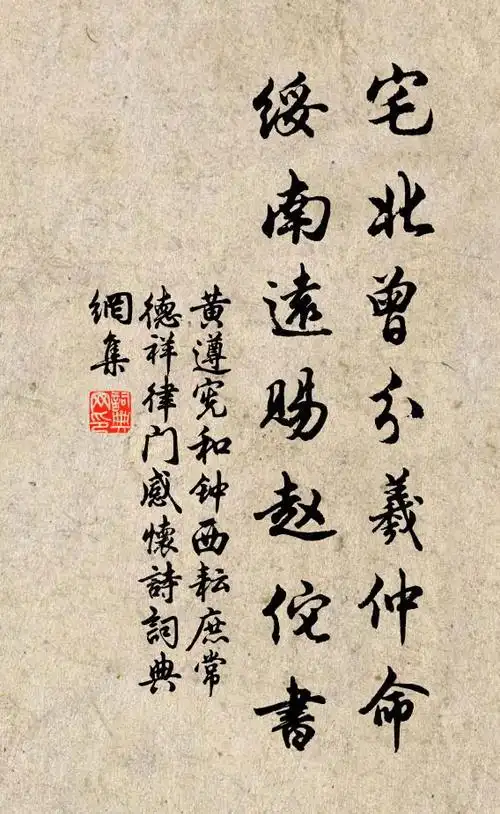 宅北曾分羲仲命
绥南遠賜赵佗書
黄遵宪和钟西耘庶常
德祥律门感懷詩詞典
網集
詞典
网印